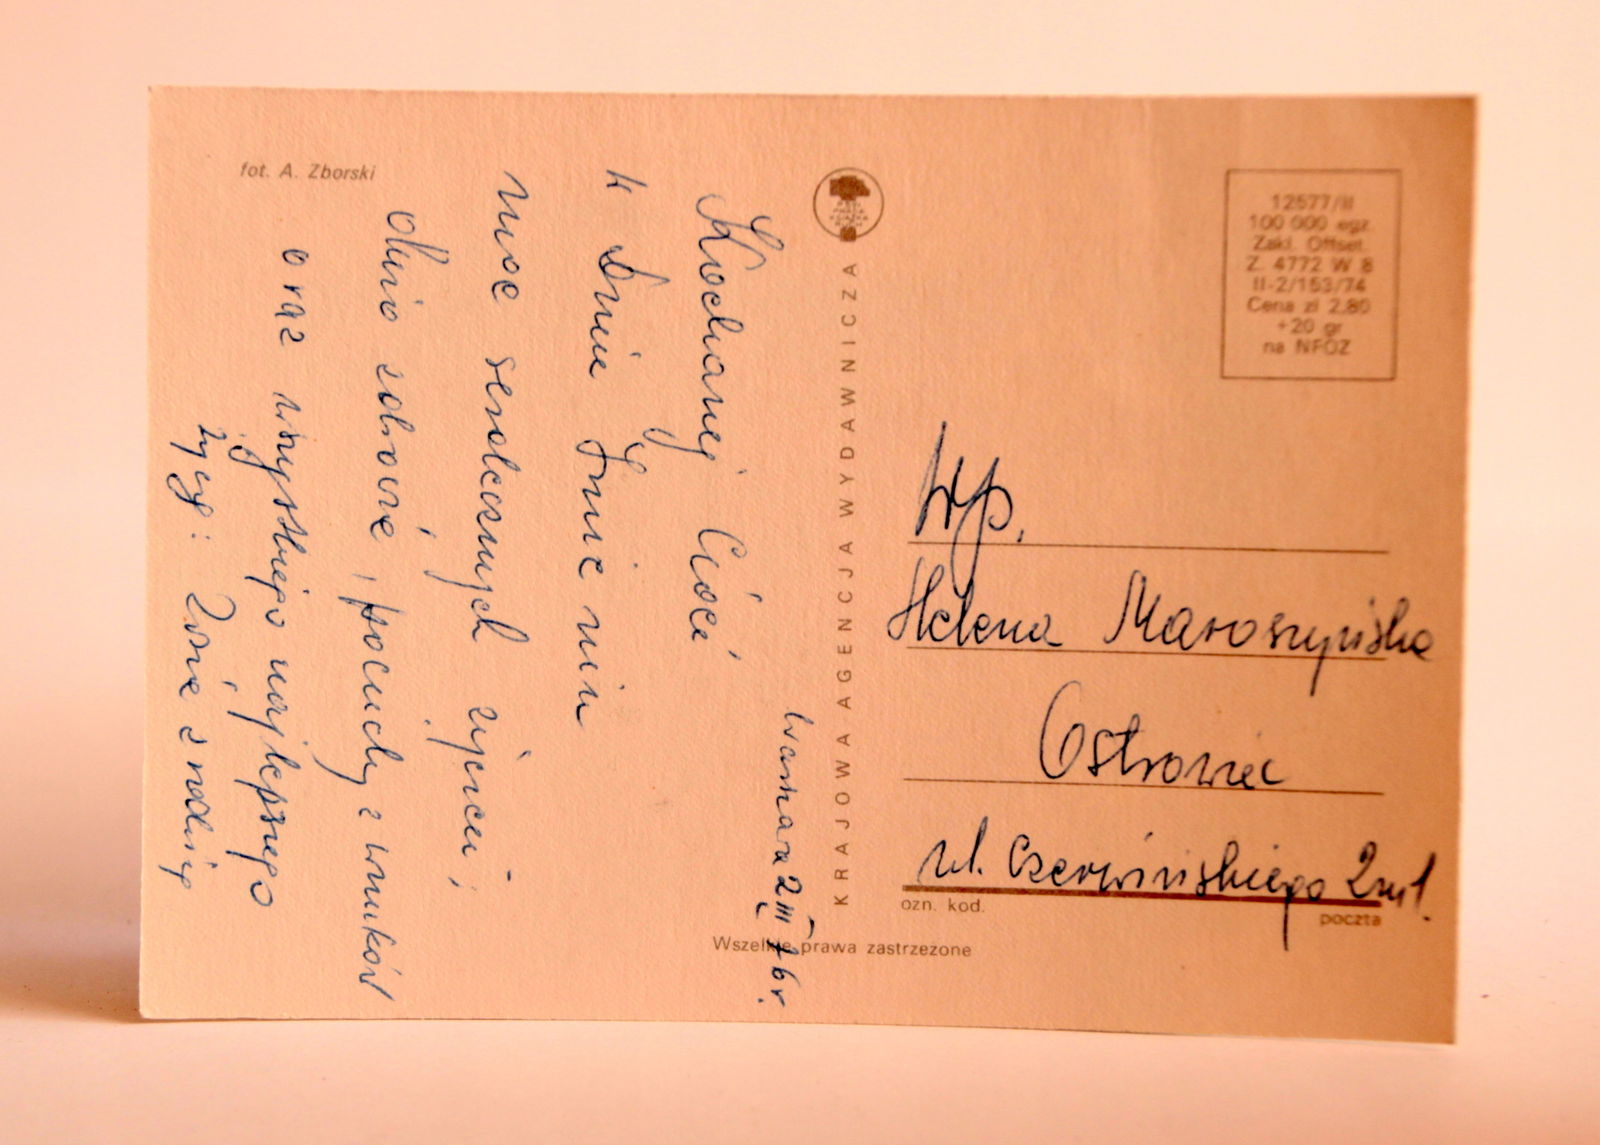 fot. A. Zborski
Warszawa 2 III 76 r.
Kochanej Cioci
W Dniu Imienin
moc serdecznych życzeń
dużo zdrowia, pociechy z wnuków
oraz wszystkiego najlepszego
życzy: Zosia z rodziną
KRAJOWA AGENCJA WYDAWNICZA
PRASA
KSIĄŻKA
RUCH
12577/II
100 000 egz.
Zakł. Offset.
Z. 4772 W 8
II-2/153/74
Cena zł 2,80
+20 gr
na NFOZ
Wp.
Helena Maroszyńska
Ostrowiec
ul. Czerwińskiego 2 m 1.
ozn. kod.
poczta
Wszelkie prawa zastrzeżone